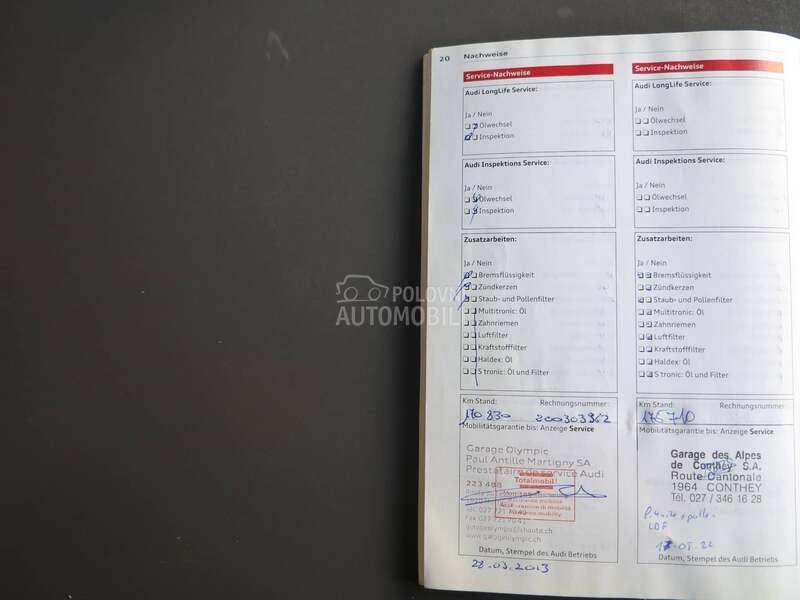 20 Nachweise
Service-Nachweise
Audi LongLife Service:
Ja / Nein
Ölwechsel
Inspektion
Audi Inspektions Service:
Ja / Nein
Ölwechsel
Inspektion
Zusatzarbeiten:
Ja / Nein
Bremsflüssigkeit
Zündkerzen
Staub- und Pollenfilter
Multitronic: Öl
Zahnriemen
Luftfilter
Kraftstofffilter
Haldex: Öl
S tronic: Öl und Filter
Km Stand: Rechnungsnummer:
170 830 300303962
Mobilitätsgarantie bis: Anzeige Service
Garage Olympic
Paul Antille Martigny SA
Prestataire de service Audi
Totalmobil!
Datum, Stempel des Audi Betriebs
28.03.2013
Service-Nachweise
Audi LongLife Service:
Ja / Nein
Ölwechsel
Inspektion
Audi Inspektions Service:
Ja / Nein
Ölwechsel
Inspektion
Zusatzarbeiten:
Ja / Nein
Bremsflüssigkeit
Zündkerzen
Staub- und Pollenfilter
Multitronic: Öl
Zahnriemen
Luftfilter
Kraftstofffilter
Haldex: Öl
S tronic: Öl und Filter
Km Stand: Rechnungsnummer:
175710
Mobilitätsgarantie bis: Anzeige Service
Garage des Alpes
de Conthey S.A.
Route Cantonale
1964 CONTHEY
Tél. 027 / 346 16 28
Datum, Stempel des Audi Betriebs
POLOVNI
AUTOMOBILI